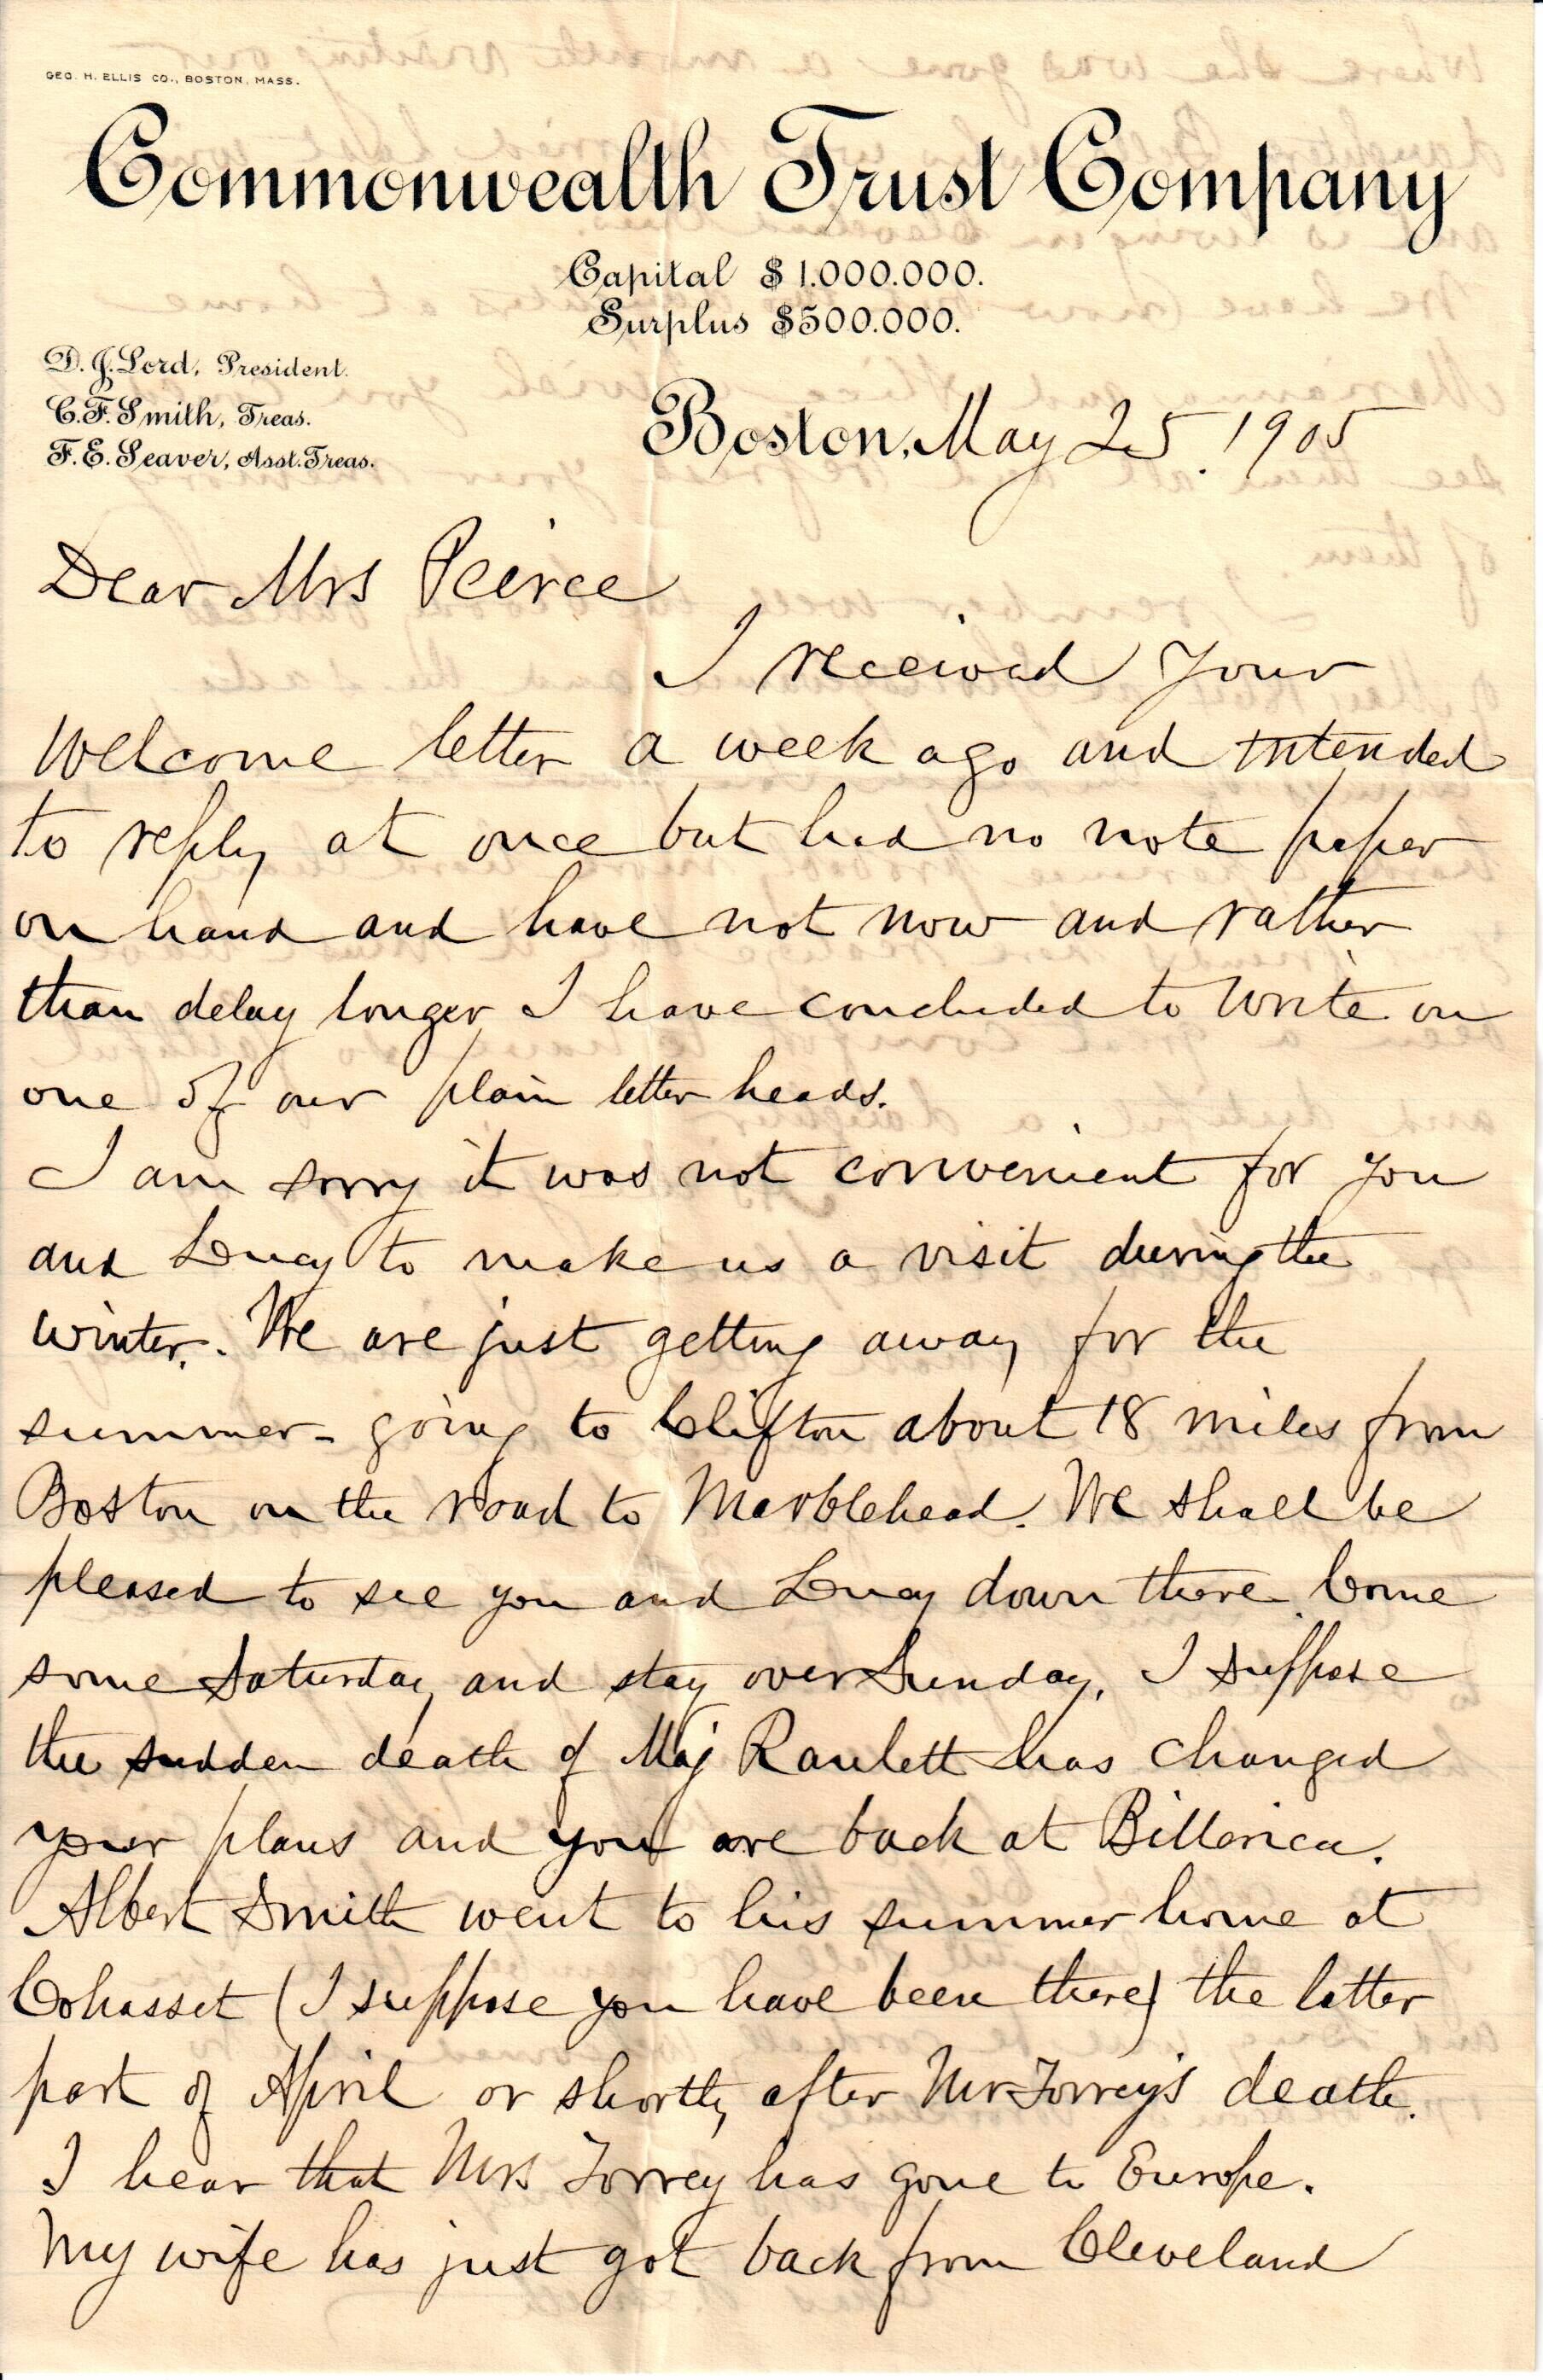 GEO. H. ELLIS CO., BOSTON, MASS.
Commonwealth Trust Company
Capital $1.000.000.
Surplus $500.000.
D. J. Lord, President.
C. F. Smith, Treas.
F. E. Seaver, Asst. Treas.
Boston, May 25. 1905
Dear Mrs Peirce
I received your
welcome letter a week ago and intended
to reply at once but had no note paper
on hand and have not now and rather
than delay longer I have concluded to write on
one of our plain letter heads.
I am sorry it was not convenient for you
and Lucy to make us a visit during the
winter. We are just getting away for the
summer - going to Clifton about 18 miles from
Boston on the road to Marblehead. We shall be
pleased to see you and Lucy down there. Come
some Saturday and stay over Sunday. I suppose
the sudden death of Maj Ranlett has changed
your plans and you are back at Billerica.
Albert Smith went to his summer home at
Cohasset (I suppose you have been there) the latter
part of April or shortly after Mr Torrey's death.
I hear that Mrs Torrey has gone to Europe.
My wife has just got back from Cleveland